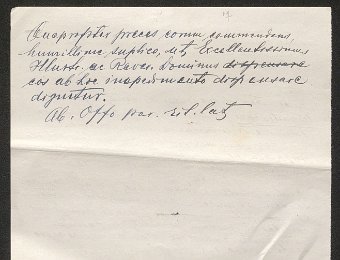 preces comm commendans
humillime suplico, ut Excellentissimus
Illustr. ac Rever. Dominus dispensare
eos ab hoc impedimento dispensare
dignetur.
Ab. Offo par. sil. lat